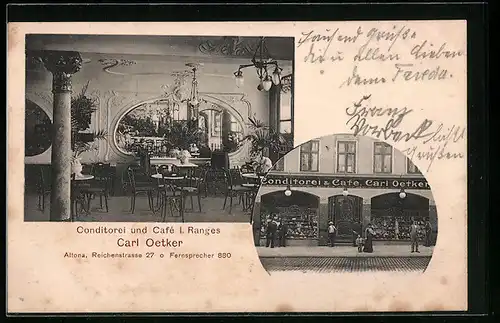 Tausend Grüße
Dir u allen Lieben
deine Frieda.
Franz
lässt
Grüßen
Conditorei & Cafe, Carl Oetker
Conditorei und Café I. Ranges
Carl Oetker
Altona, Reichenstrasse 27 o Fernsprecher 880